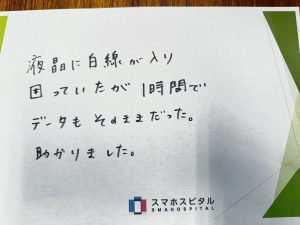 液晶に白線が入り
困っていたが1時間で
データもそのままだった。
助かりました。
スマホスピタル
SMAHOSPITAL